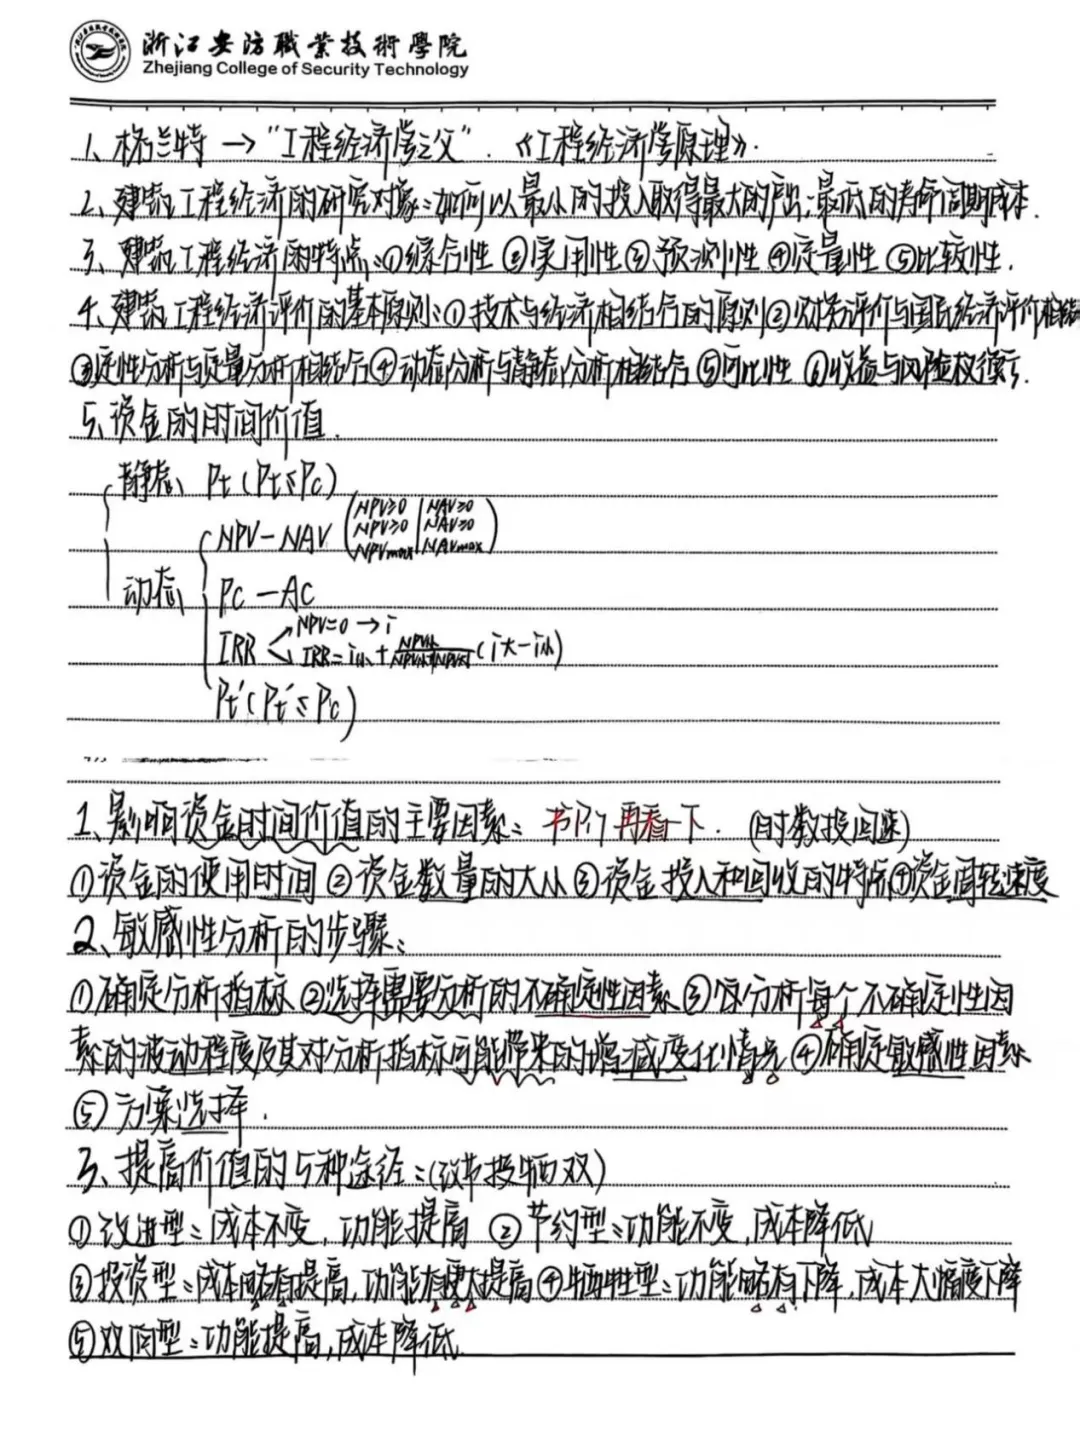 浙江安防職業技術學院
Zhejiang College of Security Technology
1、格兰特 → "工程经济学之父". 《工程经济学原理》.
2、建筑工程经济的研究对象：如何以最小的投入取得最大的产出；最低的寿命周期成本.
3、建筑工程经济的特点：①综合性 ②实用性 ③预测性 ④定量性 ⑤比较性.
4、建筑工程经济评价的基本原则：①技术与经济相结合的原则②财务评价与国民经济评价相结
③定性分析与定量分析相结合④动态分析与静态分析相结合 ⑤可比性 ⑥收益与风险权衡.
5、资金的时间价值.
静态 Pt (Pt≤Pc)
NPV≥0 | NAV≥0
NPV - NAV NPV≥0 | NAV≥0
NPVmax | NAVmax
动态 PC - AC
NPV=0 → i
IRR IRR = i小 + NPV小/NPV小+NPV大 (i大-i小)
Pt'(Pt'≤Pc)
1、影响资金时间价值的主要因素： 书门再看一下. (时数投回速)
①资金的使用时间 ②资金数量的大小 ③资金投入和回收的特点④资金周转速度
2、敏感性分析的步骤：
①确定分析指标 ②选择需要分析的不确定性因素 ③分析每个不确定性因
素的波动程度及其对分析指标可能带来的增减变化情况 ④确定敏感性因素
⑤方案选择.
3、提高价值的5种途径：(改节投牺双)
①改进型：成本不变，功能提高 ②节约型：功能不变，成本降低
③投资型：成本略有提高，功能有更大提高④牺牲型：功能略有下降，成本大幅度下降
⑤双向型：功能提高，成本降低.